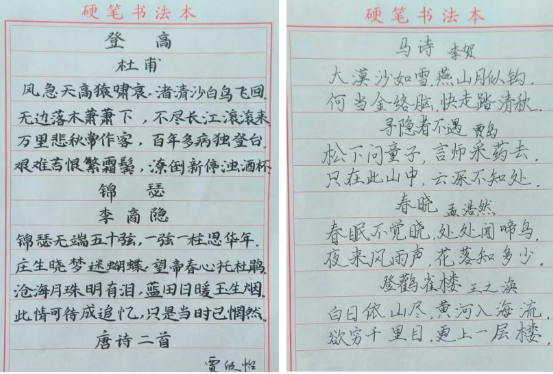 硬笔书法本
登高
杜甫
风急天高猿啸哀,渚清沙白鸟飞回.
无边落木萧萧下,不尽长江滚滚来.
万里悲秋常作客,百年多病独登台.
艰难苦恨繁霜鬓,潦倒新停浊酒杯.
锦瑟
李商隐
锦瑟无端五十弦,一弦一柱思华年.
庄生晓梦迷蝴蝶,望帝春心托杜鹃.
沧海月珠明有泪,蓝田日暖玉生烟.
此情可待成追忆,只是当时已惘然.
唐诗二首
硬笔书法本
马诗 李贺
大漠沙如雪,燕山月似钩.
何当金络脑,快走踏清秋.
寻隐者不遇 贾岛
松下问童子,言师采药去.
只在此山中,云深不知处.
春晓 孟浩然
春眠不觉晓,处处闻啼鸟.
夜来风雨声,花落知多少.
登鹳雀楼 王之涣
白日依山尽,黄河入海流.
欲穷千里目,更上一层楼.